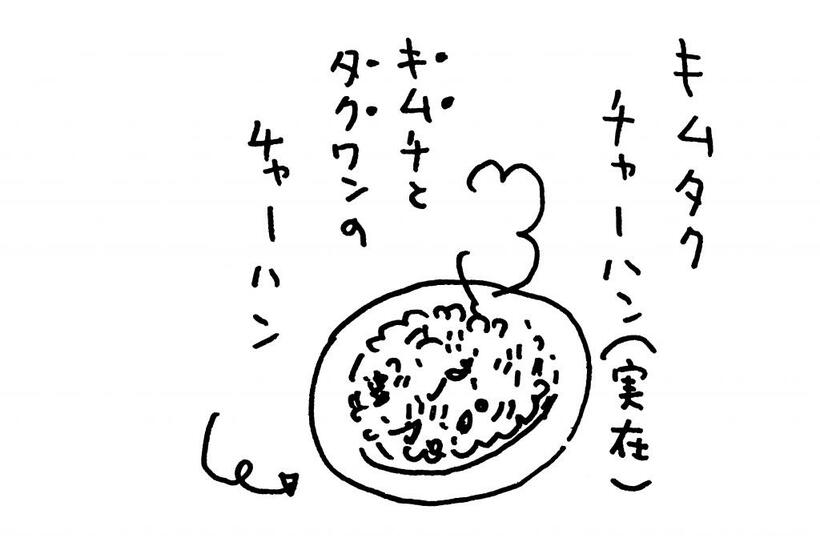 キムタク
チャーハン(実在)
キムチと
タクワンの
チャーハン